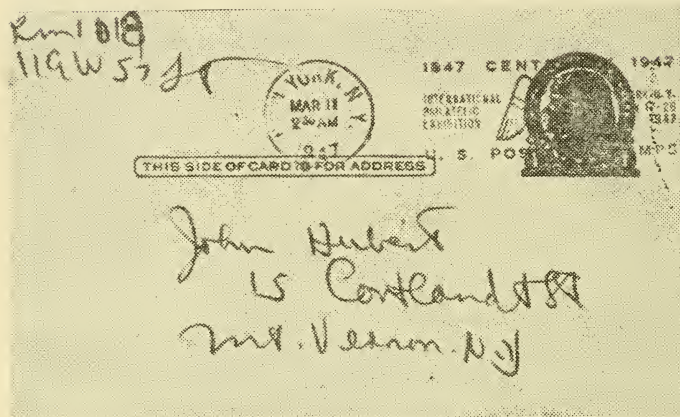 Rm 1018
119 W 57 St
YORK, N.Y.
MAR 11
2 AM
1947
1847 CENT 1947
INTERNATIONAL
PHILATELIC
EXHIBITION
U. S. POS MPS
THIS SIDE OF CARD IS FOR ADDRESS
John Hubert
15 Cortlandt St
Mt. Vernon. N.Y